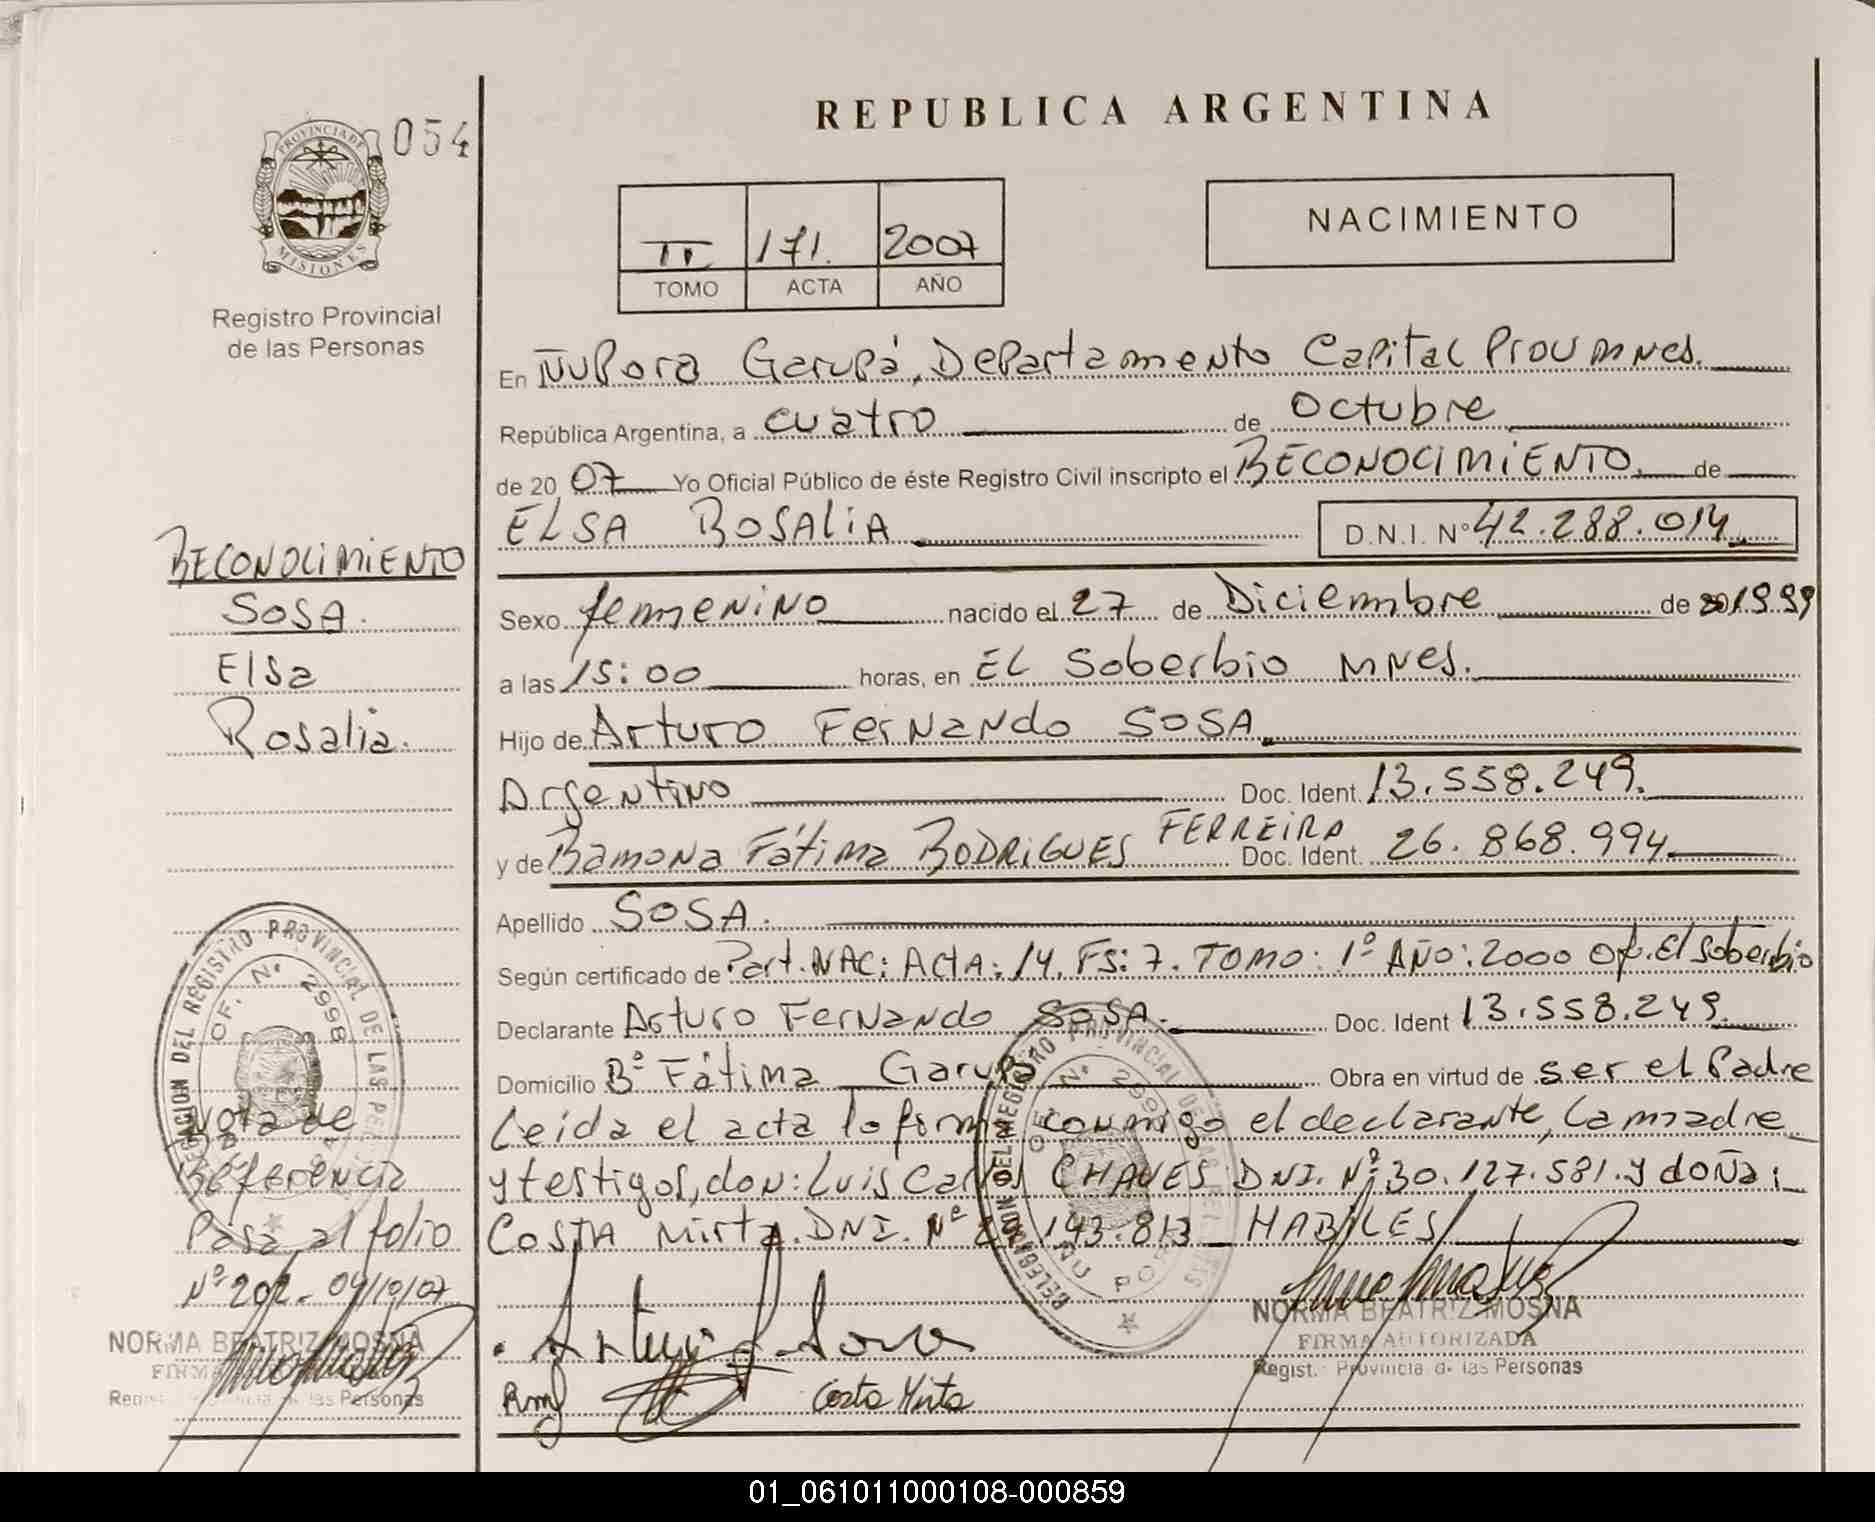 REPUBLICA ARGENTINA
PROVINCIA DE
MISIONES
054
Registro Provincial
de las Personas
II 171. 2007
TOMO ACTA AÑO
NACIMIENTO
En Ñu Pora Garupá, Departamento Capital Prov Mnes.
República Argentina, a cuatro de Octubre
de 2007 Yo Oficial Público de éste Registro Civil inscripto el RECONOCIMIENTO. de
ELSA ROSALIA D.N.I. Nº 42.288.014
Sexo femenino nacido el 27 de Diciembre de 1999
a las 15:00 horas, en EL Soberbio MNes.
Hijo de Arturo Fernando SOSA
Argentino Doc. Ident. 13.558.249.
y de Ramona Fátima RODRIGUES FERREIRA Doc. Ident. 26.868.994
Apellido SOSA.
Según certificado de Part. NAC: ACTA: 14. Fs: 7. TOMO: 1º AÑO: 2000 Of. El Soberbio
Declarante Arturo Fernando SOSA. Doc. Ident 13.558.249.
Domicilio Bº Fátima Garupá Obra en virtud de ser el Padre
Leida el acta lo firma conmigo el declarante, la madre
y testigos, don: Luis Carlos CHAVES DNI. Nº 30.127.581. y doña:
COSTA Mirta. DNI. Nº 143.813 HABILES
RECONOCIMIENTO
SOSA.
Elsa
Rosalia.
DELEGACION DEL REGISTRO PROVINCIAL DE LAS PERSONAS
OF. Nº 2998
Nota de
Referencia
Pasa al folio
Nº 202 - 04/10/07
NORMA BEATRIZ MOSNA
FIRMA
Regist. Provincia de las Personas
DELEGACION DEL REGISTRO PROVINCIAL DE LAS
Nº 299
ÑU PO
Arturo F Sosa
Costa Mirta
NORMA BEATRIZ MOSNA
FIRMA AUTORIZADA
Regist. Provincia de las Personas
01_061011000108-000859